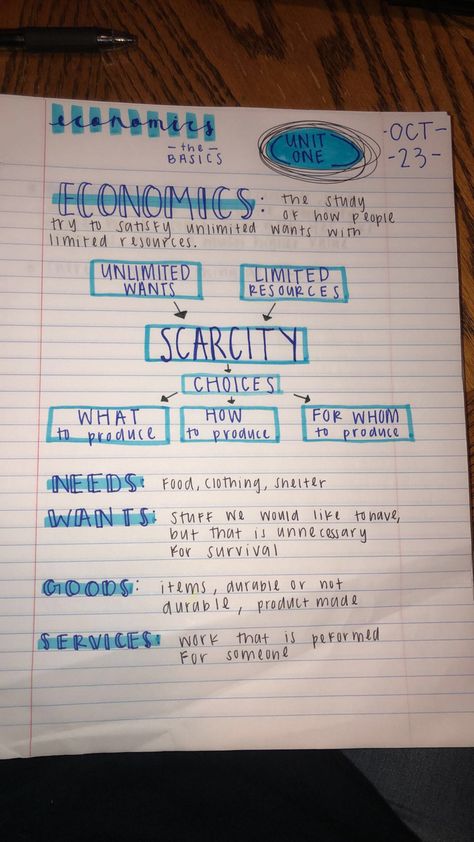 economics
- the -
BASICS
UNIT
ONE
-OCT-
-23-
ECONOMICS: the study
of how people
try to satisfy unlimited wants with
limited resources.
UNLIMITED
WANTS
LIMITED
RESOURCES
SCARCITY
CHOICES
WHAT
to produce
HOW
to produce
FOR WHOM
to produce
NEEDS: Food, clothing, shelter
WANTS: stuff we would like to have,
but that is unnecessary
for survival
GOODS: items, durable or not
durable, product made
SERVICES: work that is peformed
for someone